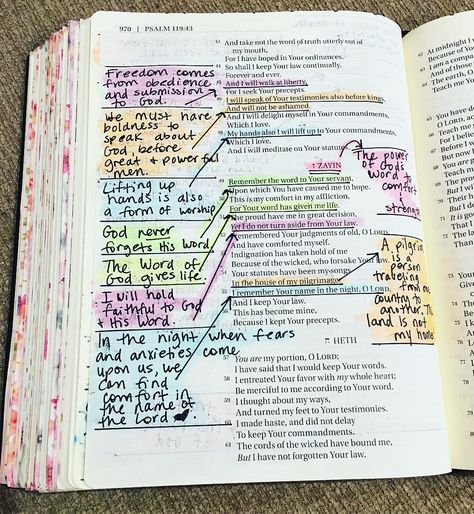 970 | PSALM 119:43
43 And take not the word of truth utterly out of
my mouth,
For I have hoped in Your ordinances.
44 So shall I keep Your law continually,
Forever and ever.
45 And I will walk at liberty,
For I seek Your precepts.
46 I will speak of Your testimonies also before kings,
And will not be ashamed.
47 And I will delight myself in Your commandments,
Which I love.
48 My hands also I will lift up to Your commandments,
Which I love,
And I will meditate on Your statutes.
ז ZAYIN
49 Remember the word to Your servant,
Upon which You have caused me to hope.
50 This is my comfort in my affliction,
For Your word has given me life.
51 The proud have me in great derision,
Yet I do not turn aside from Your law.
52 I remembered Your judgments of old, O LORD,
And have comforted myself.
53 Indignation has taken hold of me
Because of the wicked, who forsake Your law.
54 Your statutes have been my songs
In the house of my pilgrimage.
55 I remember Your name in the night, O LORD,
And I keep Your law.
56 This has become mine,
Because I kept Your precepts.
ח HETH
57 You are my portion, O LORD;
I have said that I would keep Your words.
58 I entreated Your favor with my whole heart;
Be merciful to me according to Your word.
59 I thought about my ways,
And turned my feet to Your testimonies.
60 I made haste, and did not delay
To keep Your commandments.
61 The cords of the wicked have bound me,
But I have not forgotten Your law.
Freedom comes
from obedience
and submission
to God.
We must have
boldness to
speak about
God before
great & powerful
men.
Lifting up
hands is also
a form of worship
God never
forgets His word.
The Word of
God gives life.
I will hold
faithful to God
& His Word.
In the night when fears
and anxieties come
upon us, we
can find
comfort in
the name of
the Lord
The power
of God's
word to
comfort
&
strength
A pilgrim
is a
person
traveling
from one
country to
another. The
land is not
my home
62 At midnight I